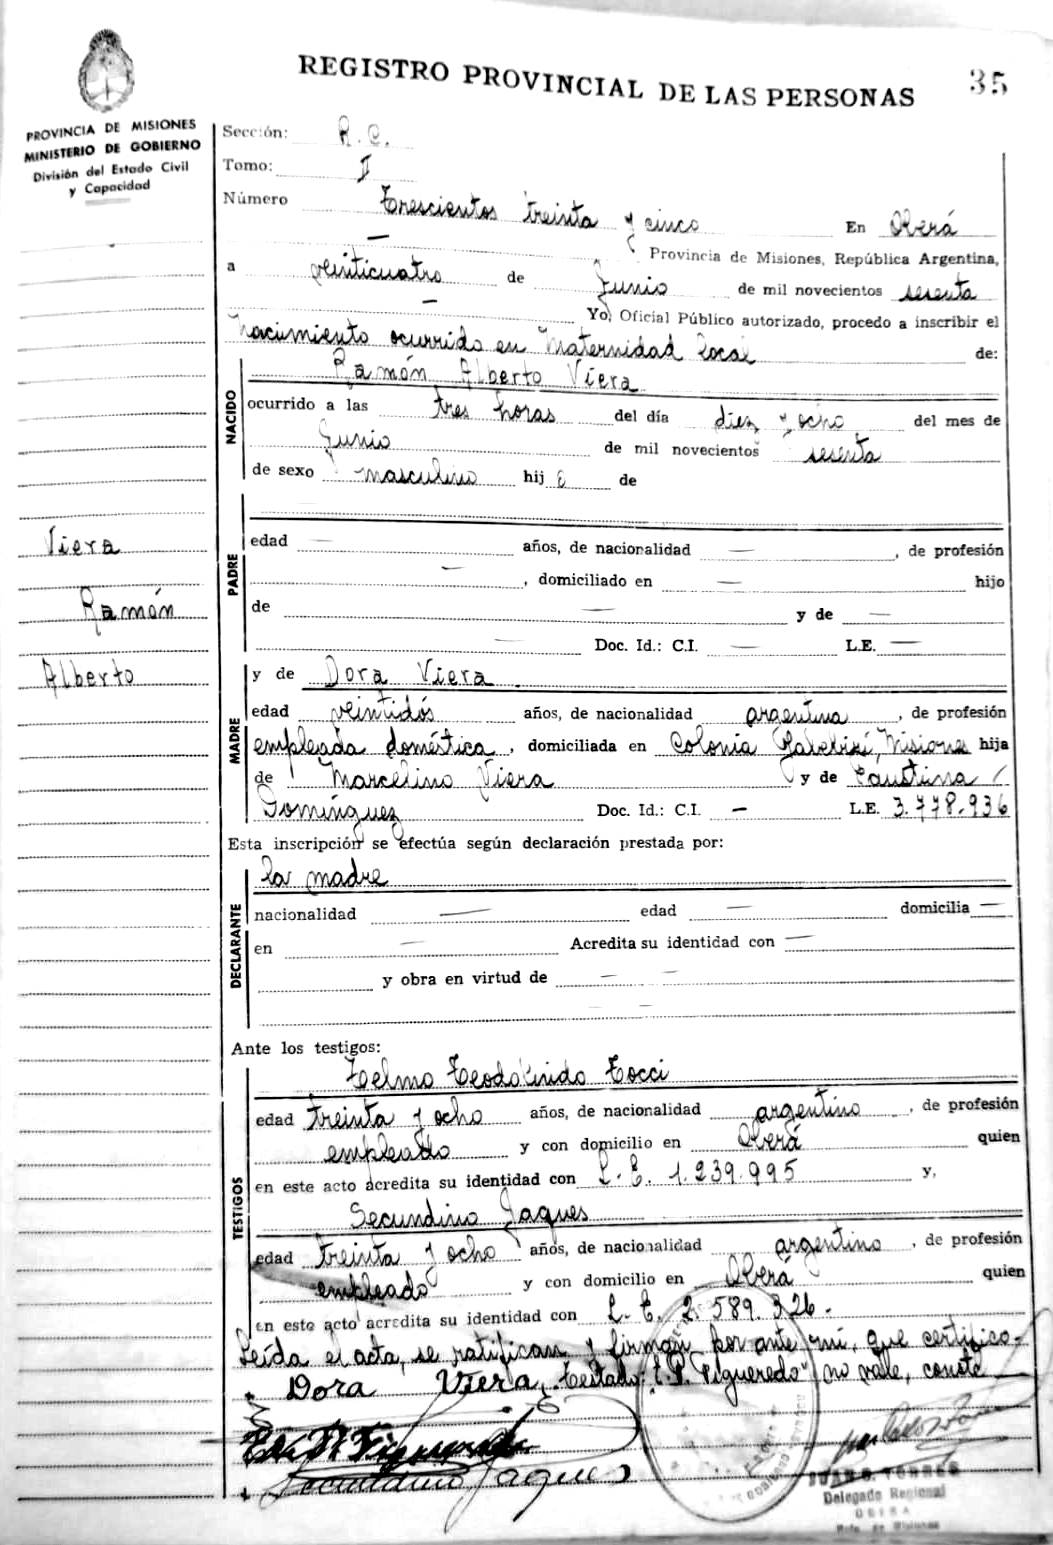 REGISTRO PROVINCIAL DE LAS PERSONAS
35
PROVINCIA DE MISIONES
MINISTERIO DE GOBIERNO
División del Estado Civil
y Capacidad
Sección: R. C.
Tomo: II
Número Trescientos treinta y cinco En Oberá
— Provincia de Misiones, República Argentina,
a veinticuatro de Junio de mil novecientos sesenta
— Yo, Oficial Público autorizado, procedo a inscribir el
Nacimiento ocurrido en Maternidad local de:
NACIDO
Ramón Alberto Viera
ocurrido a las tres horas del día diez y ocho del mes de
Junio de mil novecientos sesenta
de sexo masculino hijo de
PADRE
edad — años, de nacionalidad —, de profesión
—, domiciliado en — hijo
de — y de —
— Doc. Id.: C.I. — L.E. —
Viera
Ramón
Alberto
MADRE
y de Dora Viera
edad veintidós años, de nacionalidad argentina, de profesión
empleada doméstica, domiciliada en Colonia Misiones hija
de Marcelino Viera y de Faustina
Domínguez Doc. Id.: C.I. — L.E. 3.778.936
Esta inscripción se efectúa según declaración prestada por:
DECLARANTE
la madre
nacionalidad — edad — domicilia —
en — Acredita su identidad con —
y obra en virtud de — —
— —
Ante los testigos:
TESTIGOS
Telmo Teodolindo Tocci
edad treinta y ocho años, de nacionalidad argentino, de profesión
empleado y con domicilio en Oberá quien
en este acto acredita su identidad con L. E. 1.239.995 y,
Secundino Jaques
edad treinta y ocho años, de nacionalidad argentino, de profesión
empleado y con domicilio en Oberá quien
en este acto acredita su identidad con L. E. 2.589.326.
Leída el acta, se ratifican y firman por ante mí, que certifico.
Dora Viera. Testado: Figueredo" no vale, conste
Secundino Jaques
JUAN TORRES
Delegado Regional
OBERA
Pcia. de Misiones